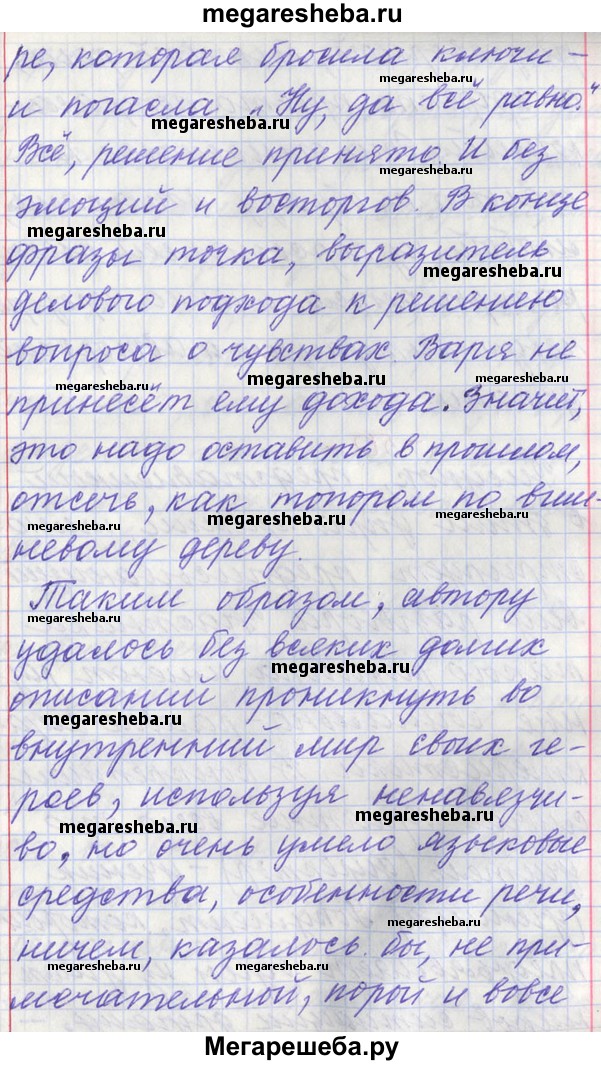 megaresheba.ru
ре, которая бросила ключи –
megaresheba.ru
и погасла „Ну, да всё равно.“
megaresheba.ru
Всё, решение принято. И без
эмоций и восторгов. В конце
megaresheba.ru
фразы точка, выразитель
megaresheba.ru
делового подхода к решению
вопроса о чувствах. Варя не
megaresheba.ru megaresheba.ru megaresheba.ru
принесёт ему дохода. Значит,
это надо оставить в прошлом,
отсечь, как топором по виш-
megaresheba.ru megaresheba.ru megaresheba.ru
невому дереву.
Таким образом, автору
megaresheba.ru
удалось без всяких долгих
megaresheba.ru
описаний проникнуть во
megaresheba.ru
внутренний мир своих ге-
роев, используя ненавязчи-
megaresheba.ru megaresheba.ru
во, но очень умело языковые
средства, особенности речи,
megaresheba.ru
ничем, казалось бы, не при-
megaresheba.ru megaresheba.ru
мечательной, порой и вовсе
Мегарешеба.ру